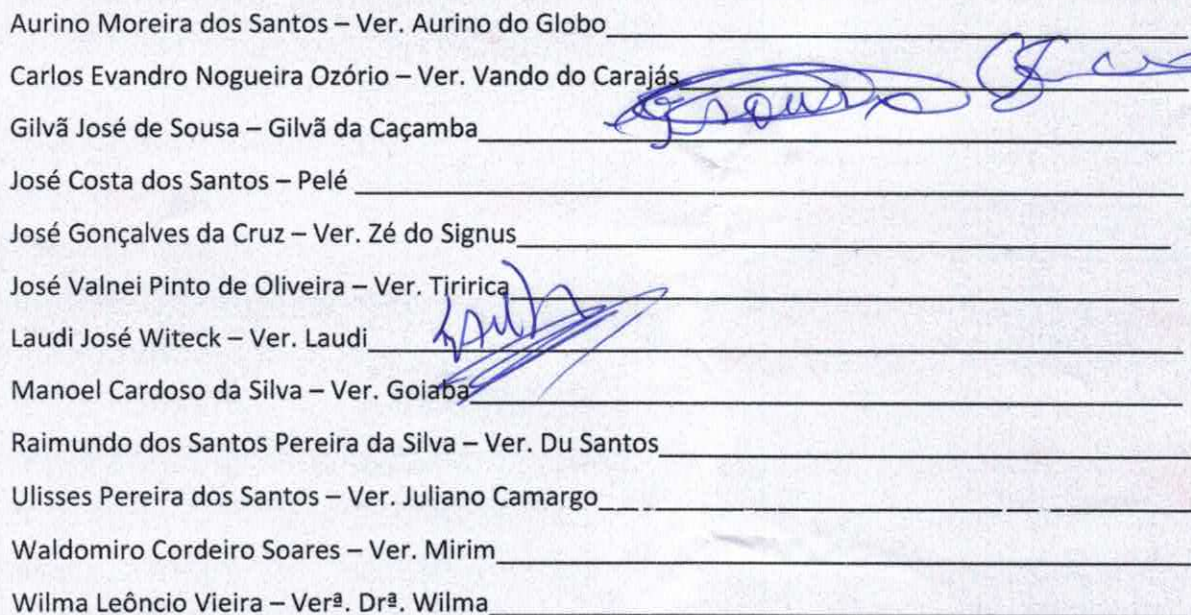 Aurino Moreira dos Santos – Ver. Aurino do Globo
Carlos Evandro Nogueira Ozório – Ver. Vando do Carajás
Gilvã José de Sousa – Gilvã da Caçamba
José Costa dos Santos – Pelé
José Gonçalves da Cruz – Ver. Zé do Signus
José Valnei Pinto de Oliveira – Ver. Tiririca
Laudi José Witeck – Ver. Laudi
Manoel Cardoso da Silva – Ver. Goiaba
Raimundo dos Santos Pereira da Silva – Ver. Du Santos
Ulisses Pereira dos Santos – Ver. Juliano Camargo
Waldomiro Cordeiro Soares – Ver. Mirim
Wilma Leôncio Vieira – Verª. Drª. Wilma